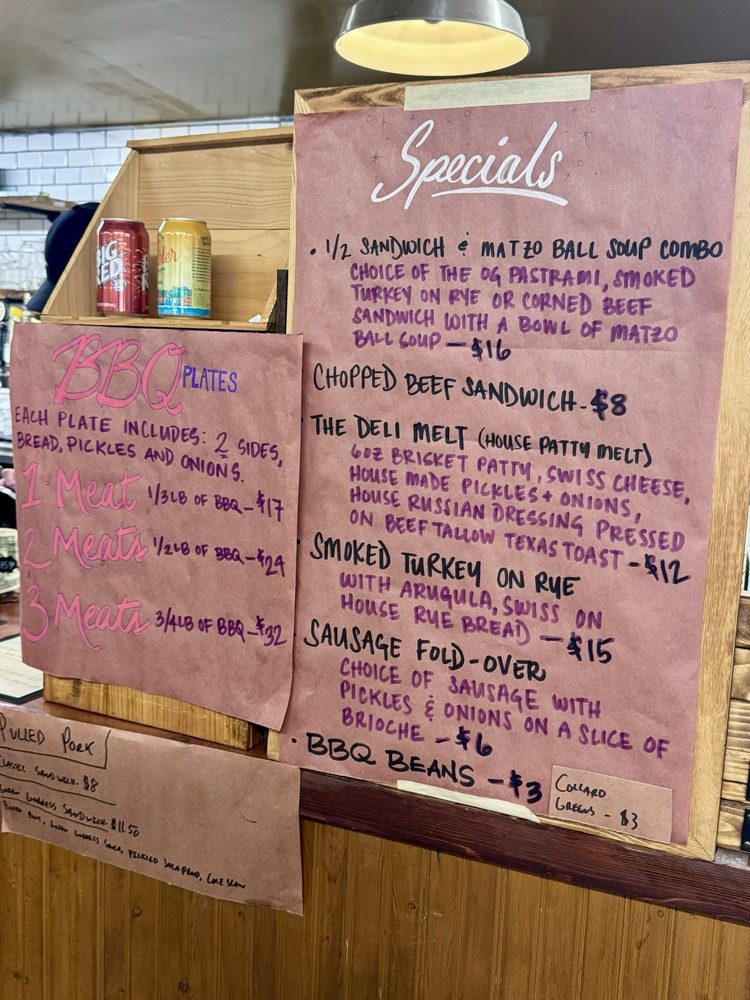 Specials
• 1/2 SANDWICH & MATZO BALL SOUP COMBO
CHOICE OF THE OG PASTRAMI, SMOKED
TURKEY ON RYE OR CORNED BEEF
SANDWICH WITH A BOWL OF MATZO
BALL SOUP — $16
CHOPPED BEEF SANDWICH - $8
THE DELI MELT (HOUSE PATTY MELT)
6OZ BRISKET PATTY, SWISS CHEESE,
HOUSE MADE PICKLES + ONIONS,
HOUSE RUSSIAN DRESSING PRESSED
ON BEEF TALLOW TEXAS TOAST - $12
SMOKED TURKEY ON RYE
WITH ARUGULA, SWISS ON
HOUSE RYE BREAD — $15
SAUSAGE FOLD-OVER
CHOICE OF SAUSAGE WITH
PICKLES & ONIONS ON A SLICE OF
BRIOCHE - $6
• BBQ BEANS - $3
COLLARD
GREENS - $3
BIG
RED
BBQ PLATES
EACH PLATE INCLUDES: 2 SIDES,
BREAD, PICKLES AND ONIONS.
1 Meat 1/3 LB OF BBQ - $17
2 Meats 1/2 LB OF BBQ - $24
3 Meats 3/4 LB OF BBQ - $32
PULLED PORK
CLASSIC SANDWICH - $8
SANDWICH - $11.50
PICKLED JALAPENO, COLE SLAW